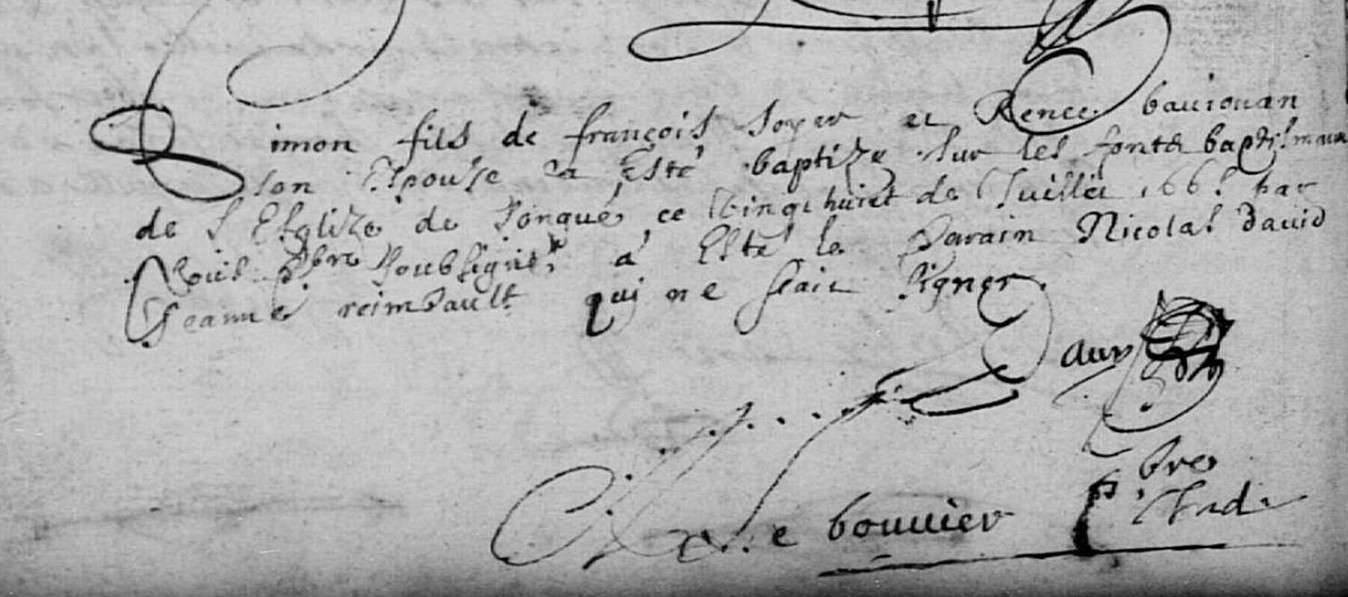 Simon fils de françois soyer et Renee bauiouan
son Espouse a Esté baptize sur les fonts baptismaux
de l'Esglize de Jonqué ce vingt huict de Juillet 166. par
Nous pbre soubsigné, a Esté le parain Nicolas David
Jeanne reimbault qui ne sçait signer.
D auy
Le bouuier pbre